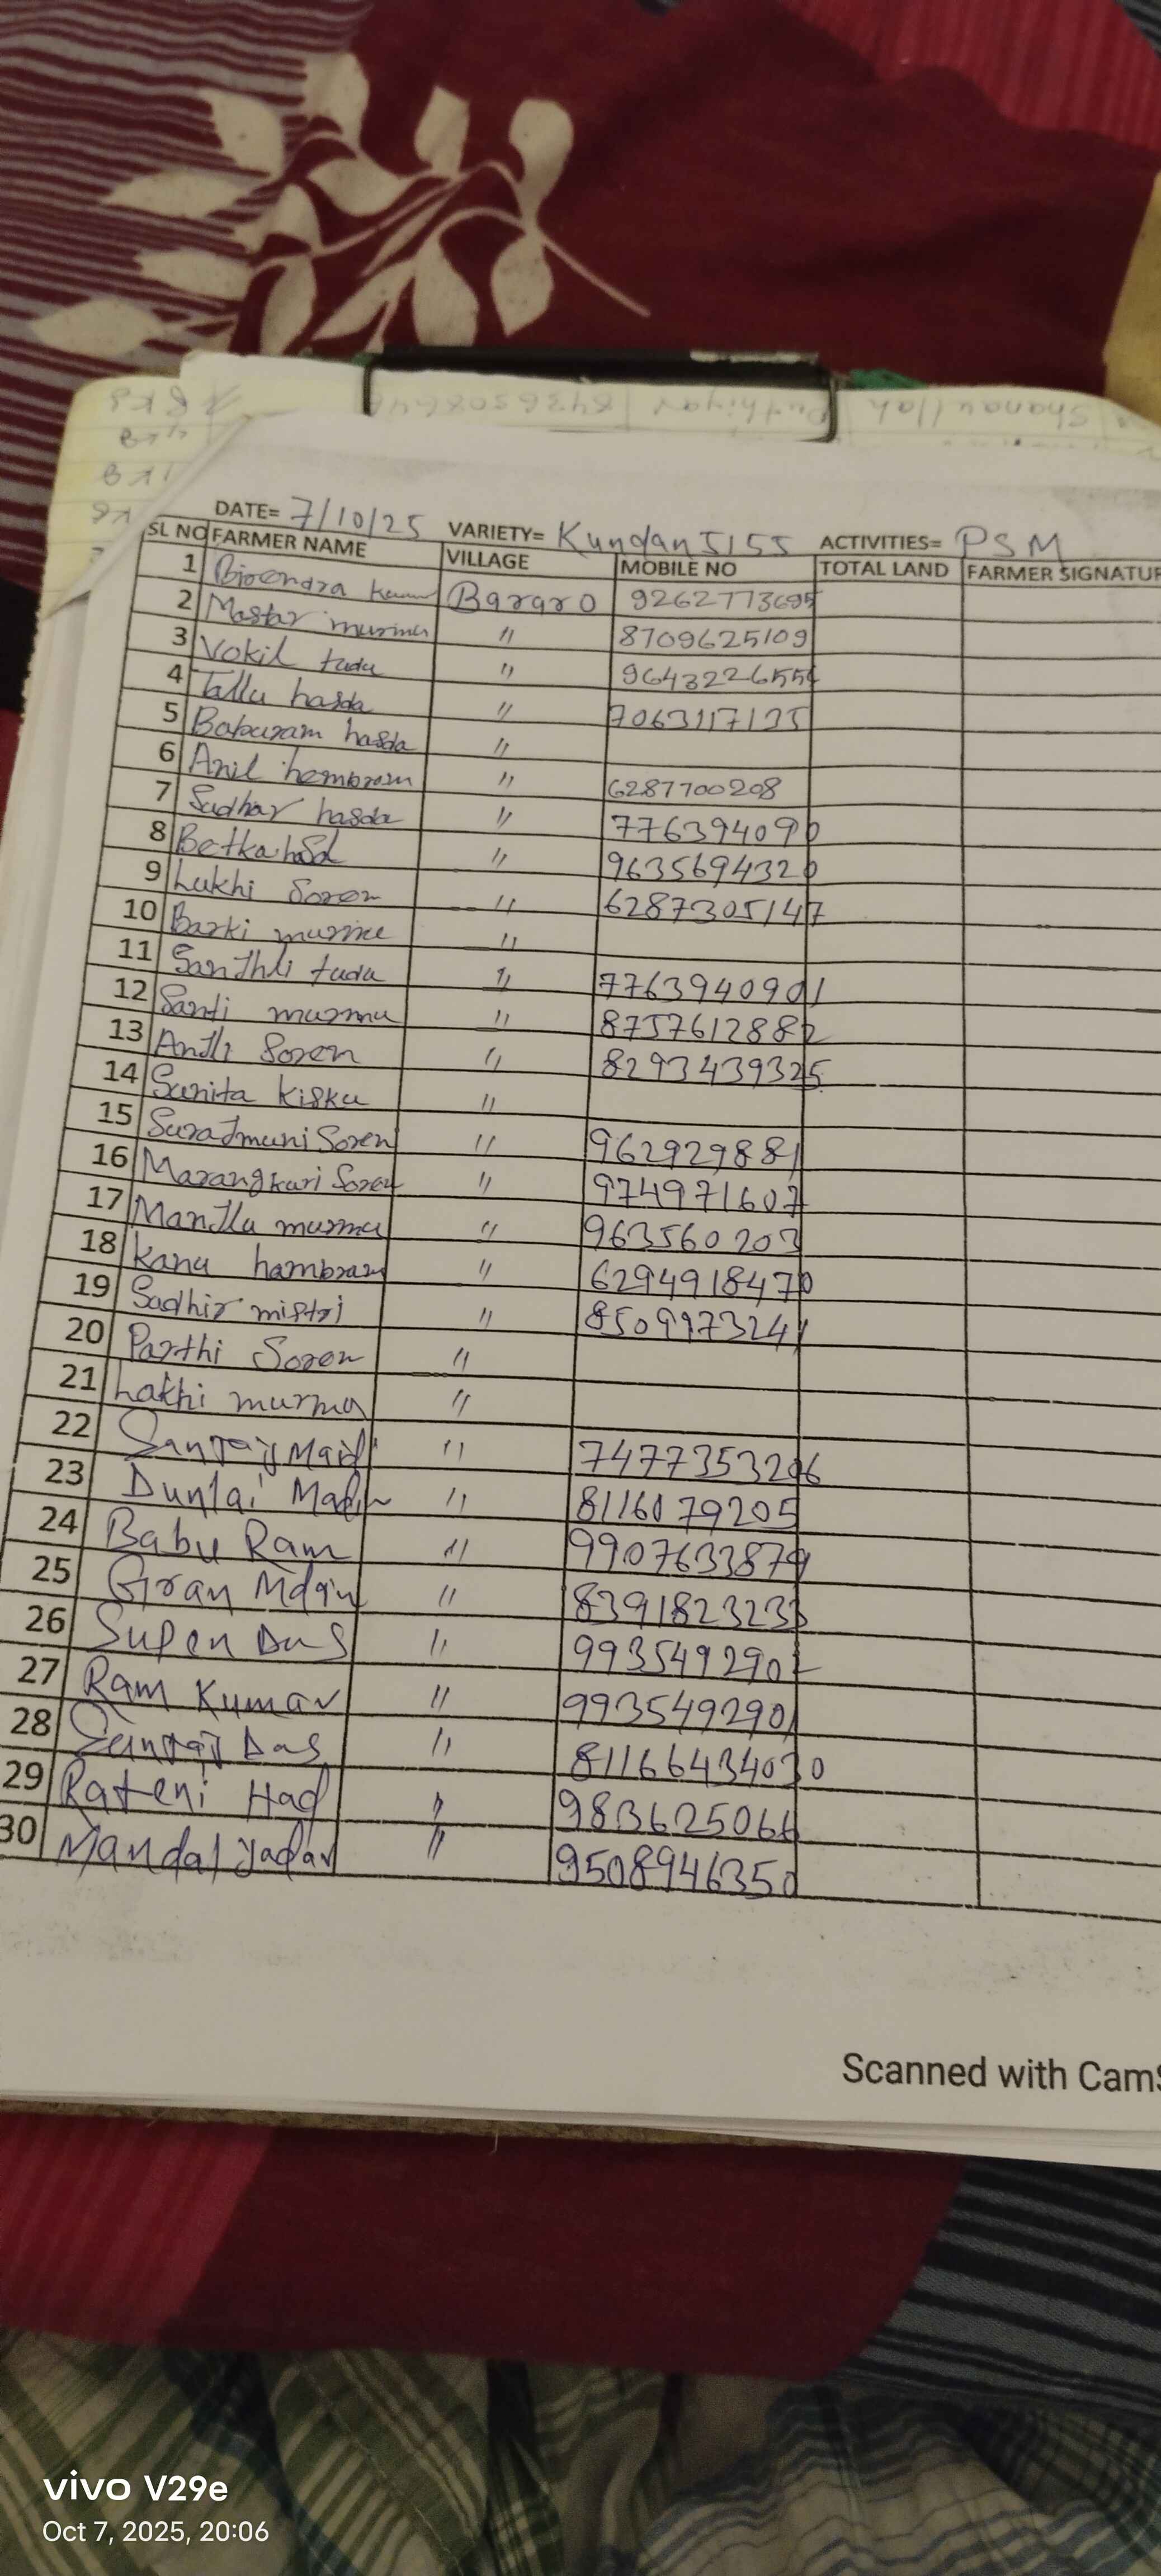 DATE= 7/10/25 VARIETY= Kundan 5155 ACTIVITIES= PSM
SL NO FARMER NAME VILLAGE MOBILE NO TOTAL LAND FARMER SIGNATUR
1 Birendra Bararo 9262773695
2 Mastar murmu " 8709625109
3 Vokil tudu " 964322655
4 Tallu hasda " 7063117135
5 Baburam hasda "
6 Anil hembram " 6287700208
7 Sudhar hasda " 776394090
8 Betka hasd " 9635694320
9 Lukhi Soren " 6287305147
10 Barki murmu "
11 Santhli tudu " 7763940901
12 Santi murmu " 8757612882
13 Soren " 8293439325
14 Sunita Kisku "
15 Surajmuni Soren " 962929881
16 Marangkuri Soren " 974971607
17 murmu " 963560203
18 Kanu hambram " 6294918470
19 Sadhir mistri " 8509973241
20 Parthi Soren "
21 Lakhi murmu "
22 " 7477353206
23 " 8116079205
24 Babu Ram " 9907633879
25 " 8391823233
26 Supen Das " 993549290
27 Ram Kumar " 993549290
28 Das " 8116643403 0
29 Rateni " 983625066
30 Mandal Yadav " 9508946350
Scanned with CamS
vivo V29e
Oct 7, 2025, 20:06